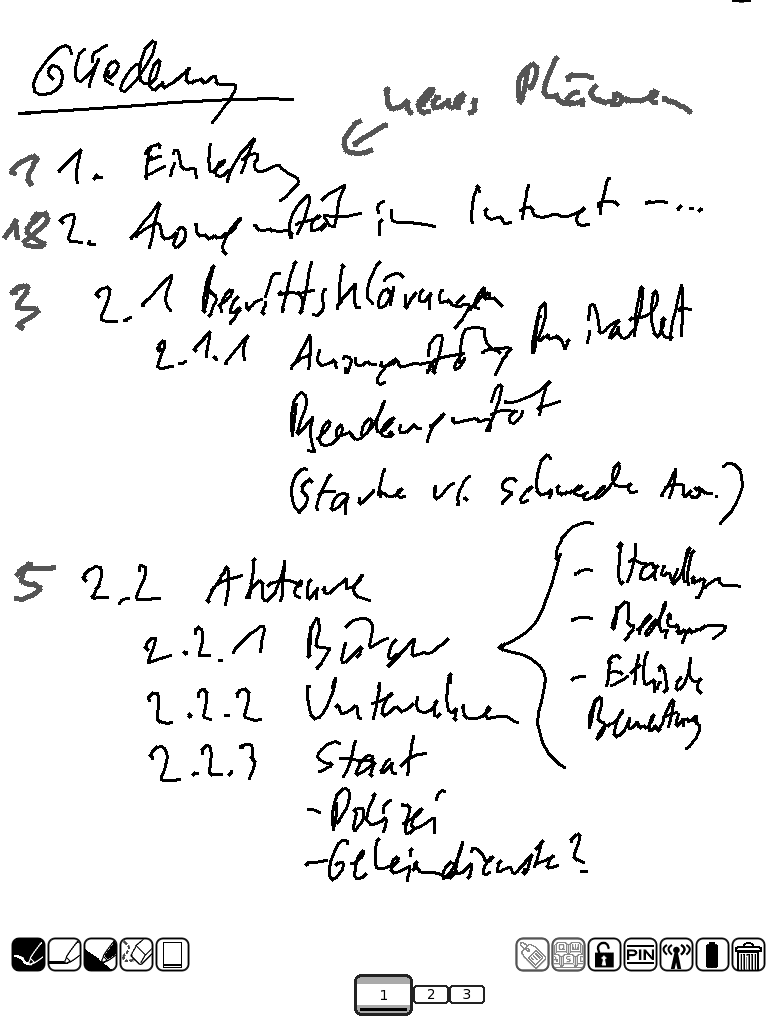 Gliederung
neues Phänomen
1 1. Einleitung
18 2. Anonymität im Internet -...
3 2.1 Begriffsklärungen
2.1.1 Anonymität, Privatheit
Pseudonymität
(starke vs. schwache Anon.)
5 2.2 Akteure
- Handlungen
2.2.1 Bürger
- Bedingungen
2.2.2 Unternehmen
- Ethische
Bewertung
2.2.3 Staat
- Polizei
- Geheimdienste?
PIN
1 2 3